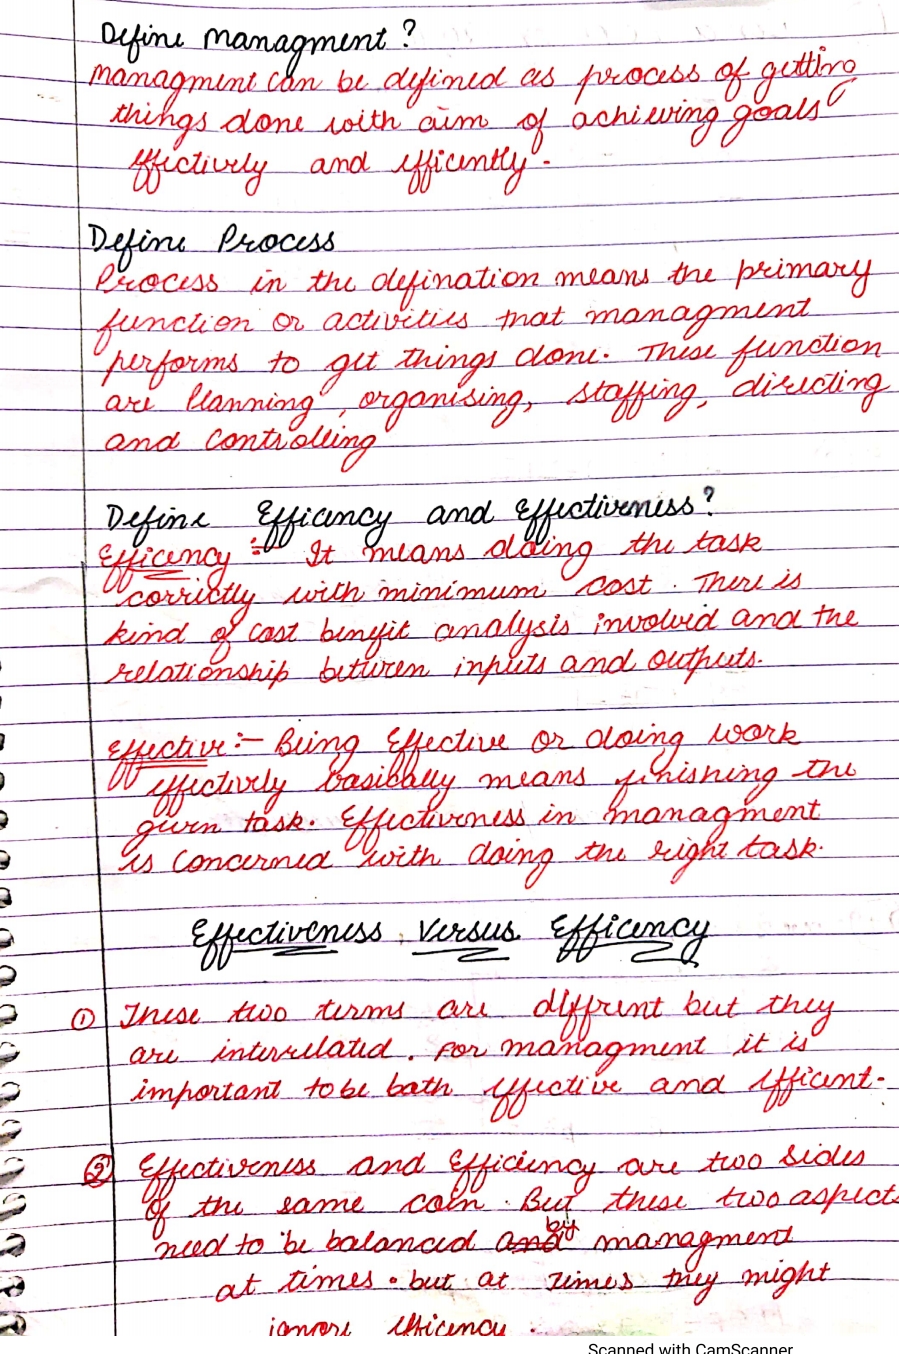 Define managment?
managment can be defined as process of getting
things done with aim of achieving goals
effectively and efficently.
Define Process
Process in the defination means the primary
function or activities that managment
performs to get things done. These function
are Planning, organising, staffing, directing
and controlling
Define Efficency and Effectiveness?
Efficency :- It means doing the task
correctly with minimum cost. There is
kind of cost benefit analysis involved and the
relationship between inputs and outputs.
Effective :- Being Effective or doing work
effectively basically means finishing the
given task. Effectiveness in managment
is concerned with doing the right task.
Effectiveness versus Efficency
① These two terms are diffrent but they
are interrelated. For managment it is
important to be both effective and efficent.
② Effectiveness and Efficiency are two sides
of the same coin. But these two aspects
need to be balanced by managment
at times. but at times they might
ignore efficency.
Scanned with CamScanner